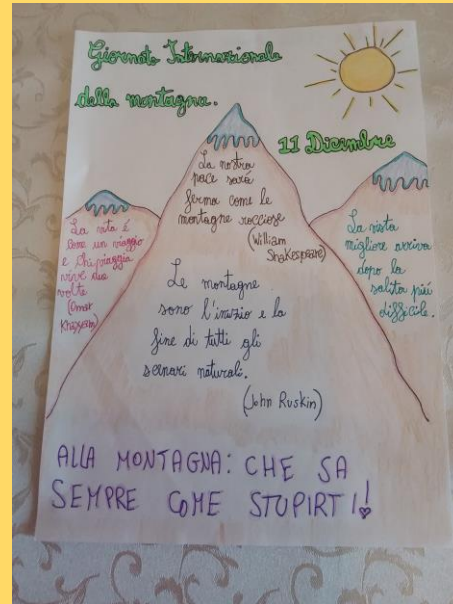 Giornata Internazionale
della montagna.
11 Dicembre
La nostra
pace sarà
ferma come le
montagne rocciose
(William
Shakespeare)
La vita é
come un viaggio
e chi viaggia
vive due
volte
(Omar
Khayyam)
La vista
migliore arriva
dopo la
salita più
difficile.
Le montagne
sono l'inizio e la
fine di tutti gli
scenari naturali.
(John Ruskin)
ALLA MONTAGNA: CHE SA
SEMPRE COME STUPIRTI!